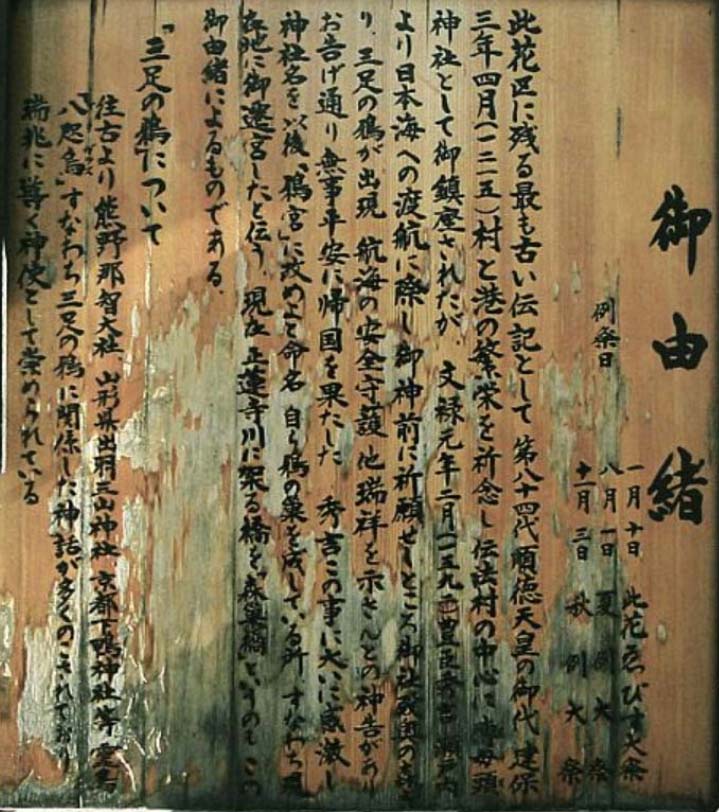 御由緒
例祭日
一月十日 此花ゑびす大祭
八月一日 夏例大祭
十二月三日 秋例大祭
此花区に残る最も古い伝記として 第八十四代順徳天皇の御代 建保
三年四月(一二一五)村と港の繁栄を祈念し伝法村の中心に 頭
神社として御鎮座されたが、文禄元年二月(一五九二)豊臣秀吉 瀬戸内
より日本海への渡航に際し御神前に祈願せしところ御社
り、三足の鴉が出現 航海の安全守護他瑞祥を示さんとの神告があり
お告げ通り無事平安に帰国を果たした 秀吉この事に大いに感激し
神社名を以後「鴉宮」に改めよと命名 自ら鴉の巣を成している所 すなわち現
在地に御遷宮したと伝う、現在 正蓮寺川に架る橋を「森巣橋」と この
御由緒によるものである。
「三足の鴉」について
往古より 熊野那智大社 山形県出羽三山神社 京都下鴨神社等
「八咫烏」すなわち三足の鴉に関係した神話が多くのこされており
瑞兆に導く神使として崇められている